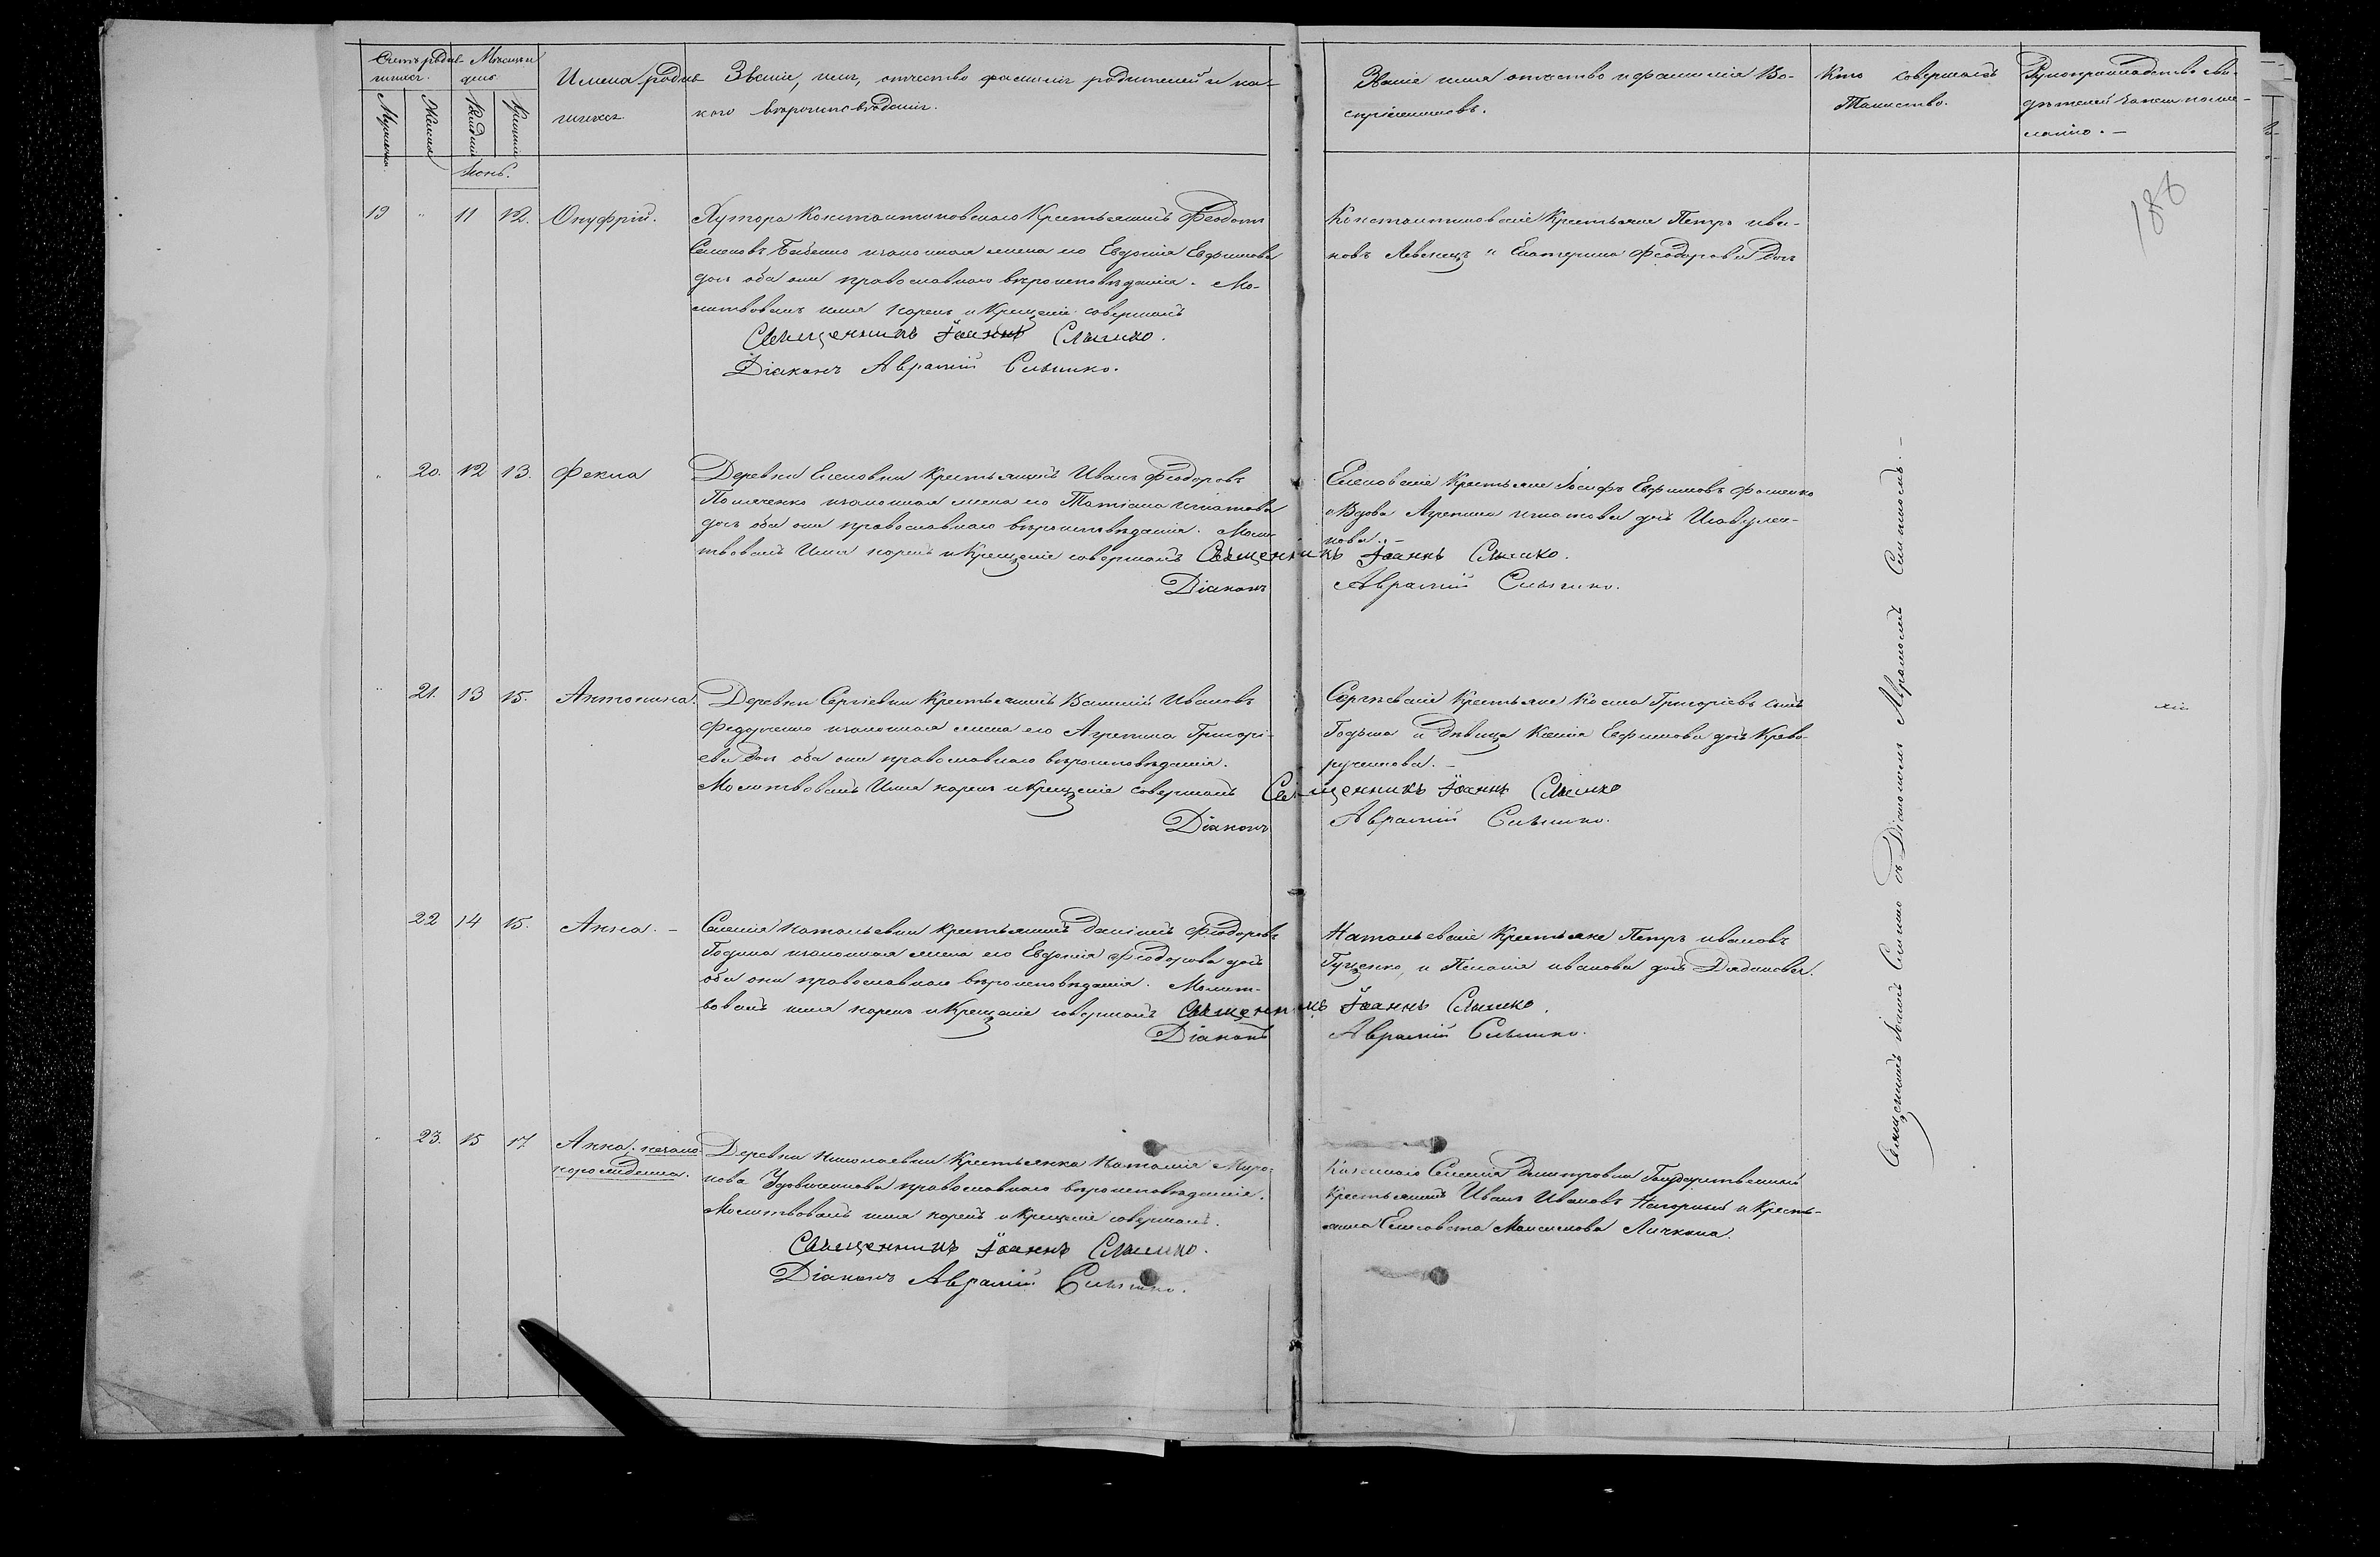 Счетъ родив-
шихся.
Мѣсяцъ и
день
Имена родив-
шихся
Званіе, имя, отчество фамилія родителей и ка-
кого вѣроисповѣданія.
Званіе имя отчество и фамилія Во-
спріемниковъ.
Кто совершалъ
Таинство.
Рукоприкладство сви-
дѣтелей записи по же-
ланію. —
Мужеска
Женска
Рожденія
Крещенія
Іюнь.
188
19 „ 11 12. Онуфрій.
Хутора Константиновскаго Крестьянинъ Феодотъ
Семеновъ Бабенко изаконная жена его Евдокія Евфимова
дочь оба они православнаго вѣроисповѣданія. Мо-
литвовалъ имя нарекъ и Крещеніе совершалъ
Священникъ Іоаннъ Слышко.
Діаконъ Аврамій Слышко.
Константиновскіе Крестьяне Петръ ива-
новъ Левенецъ и Екатерина Феодорова дочь
„ 20. 12 13. Фекла
Деревни Еленовки Крестьянинъ Иванъ Феодоровъ
изаконная жена его Татіана игнатова
дочь оба они православнаго вѣроисповѣданія. Моли-
твовалъ Имя нарекъ и Крещеніе совершалъ Священникъ Іоаннъ Слышко.
Діаконъ Аврамій Слышко.
Еленовскіе Крестьяне Іосифъ Евфимовъ Фоменко
и Вдова Агрепина игнатова дочь
нова. —
„ 21. 13 15. Антонина.
Деревни Сергіевки Крестьянинъ Василій Ивановъ
Федорченко изаконная жена его Агрепина Григорі-
ева дочь оба они православнаго вѣроисповѣданія.
Молитвовалъ Имя нарекъ и Крещеніе совершалъ Священникъ Іоаннъ Слышко
Діаконъ Аврамій Слышко.
Сергѣевскіе Крестьяне Косма Григоріевъ сынъ
Годына и дѣвица Ксенія Евфимова дочь Криво-
рученкова. —
22 14 15. Анна. —
Селенія Натальевки Крестьянинъ Даніилъ Феодоровъ
Година изаконная жена его Евдокія Феодорова дочь
оба они православнаго вѣроисповѣданія. Молит-
вовалъ имя нарекъ и Крещеніе совершалъ Священникъ Іоаннъ Слышко.
Діаконъ Аврамій Слышко.
Натальевскіе Крестьяне Петръ ивановъ
Гущенко, и Пелагія иванова дочь
„ 23. 15 17 Анна, незако-
норожденна.
Деревни Николаевки Крестьянка Наталія Миро-
нова Удовиченкова православнаго вѣроисповѣданія.
Молитвовалъ имя нарекъ и Крещеніе совершалъ.
Священникъ Іоаннъ Слышко.
Діаконъ Аврамій Слышко.
Казеннаго Селенія Димитровки Государственный
Крестьянинъ Иванъ Ивановъ Нагорный и Кресть-
янка Елисавета Максимова Личкина.
Священникъ Іоаннъ Слышко съ Діакономъ Аврамомъ Слышкомъ. —